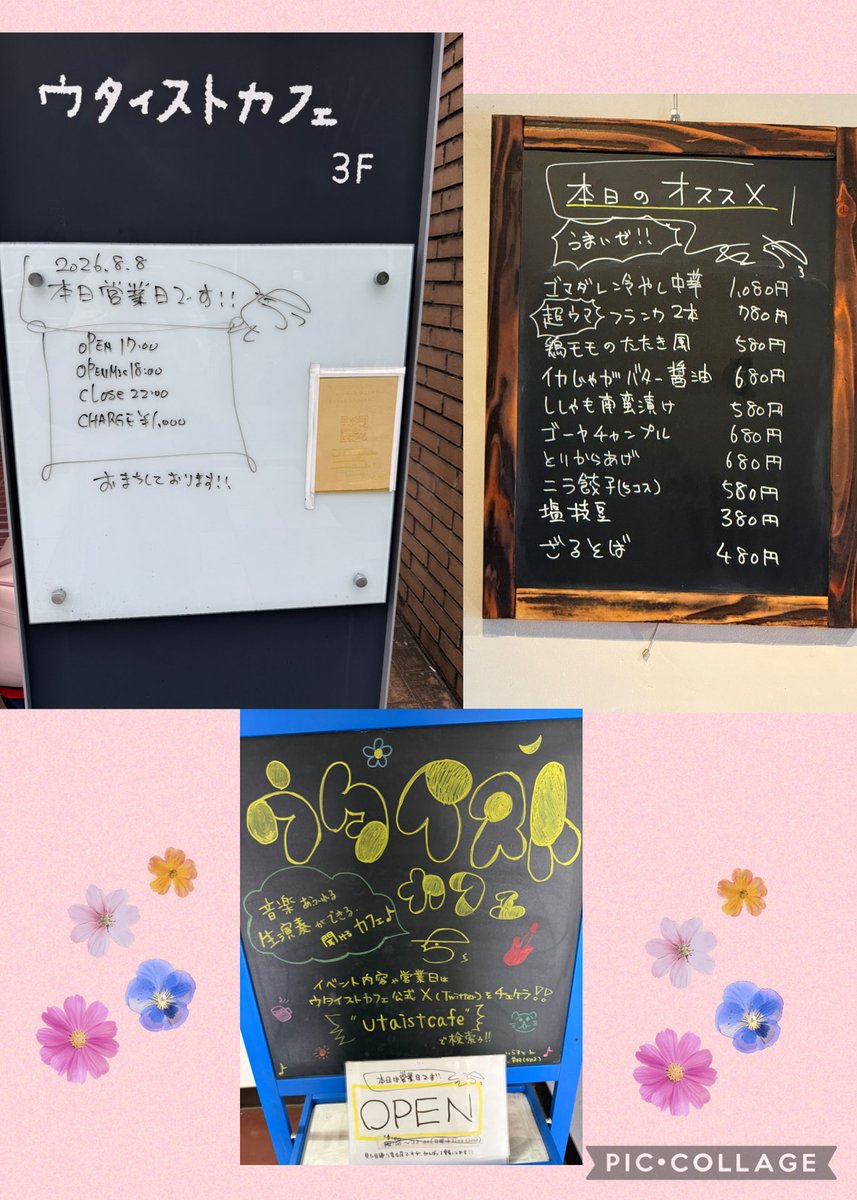 ウタイストカフェ
3F
2026.8.8
本日営業日です!!
OPEN 17:00
OPENMIC18:00
Close 22:00
CHARGE ¥1,000
おまちしております!!
本日のオススメ
うまいぜ!!
ゴマダレ冷やし中華 1,080円
超ウマ フランク2本 780円
鶏モモのたたき風 580円
イカじゃがバター醤油 680円
ししゃも南蛮漬け 580円
ゴーヤチャンプル 680円
とりからあげ 680円
ニラ餃子(5コス) 580円
塩枝豆 380円
ざるそば 480円
ウタイスト
カフェ
音楽あふれる
生演奏ができる、
聞けるカフェ♪
イベント内容や営業日は
ウタイストカフェ公式X(Twitter)をチェケラ!!
"utaistcafe"
で検索う!!
本日は営業日です!!
OPEN
PIC•COLLAGE